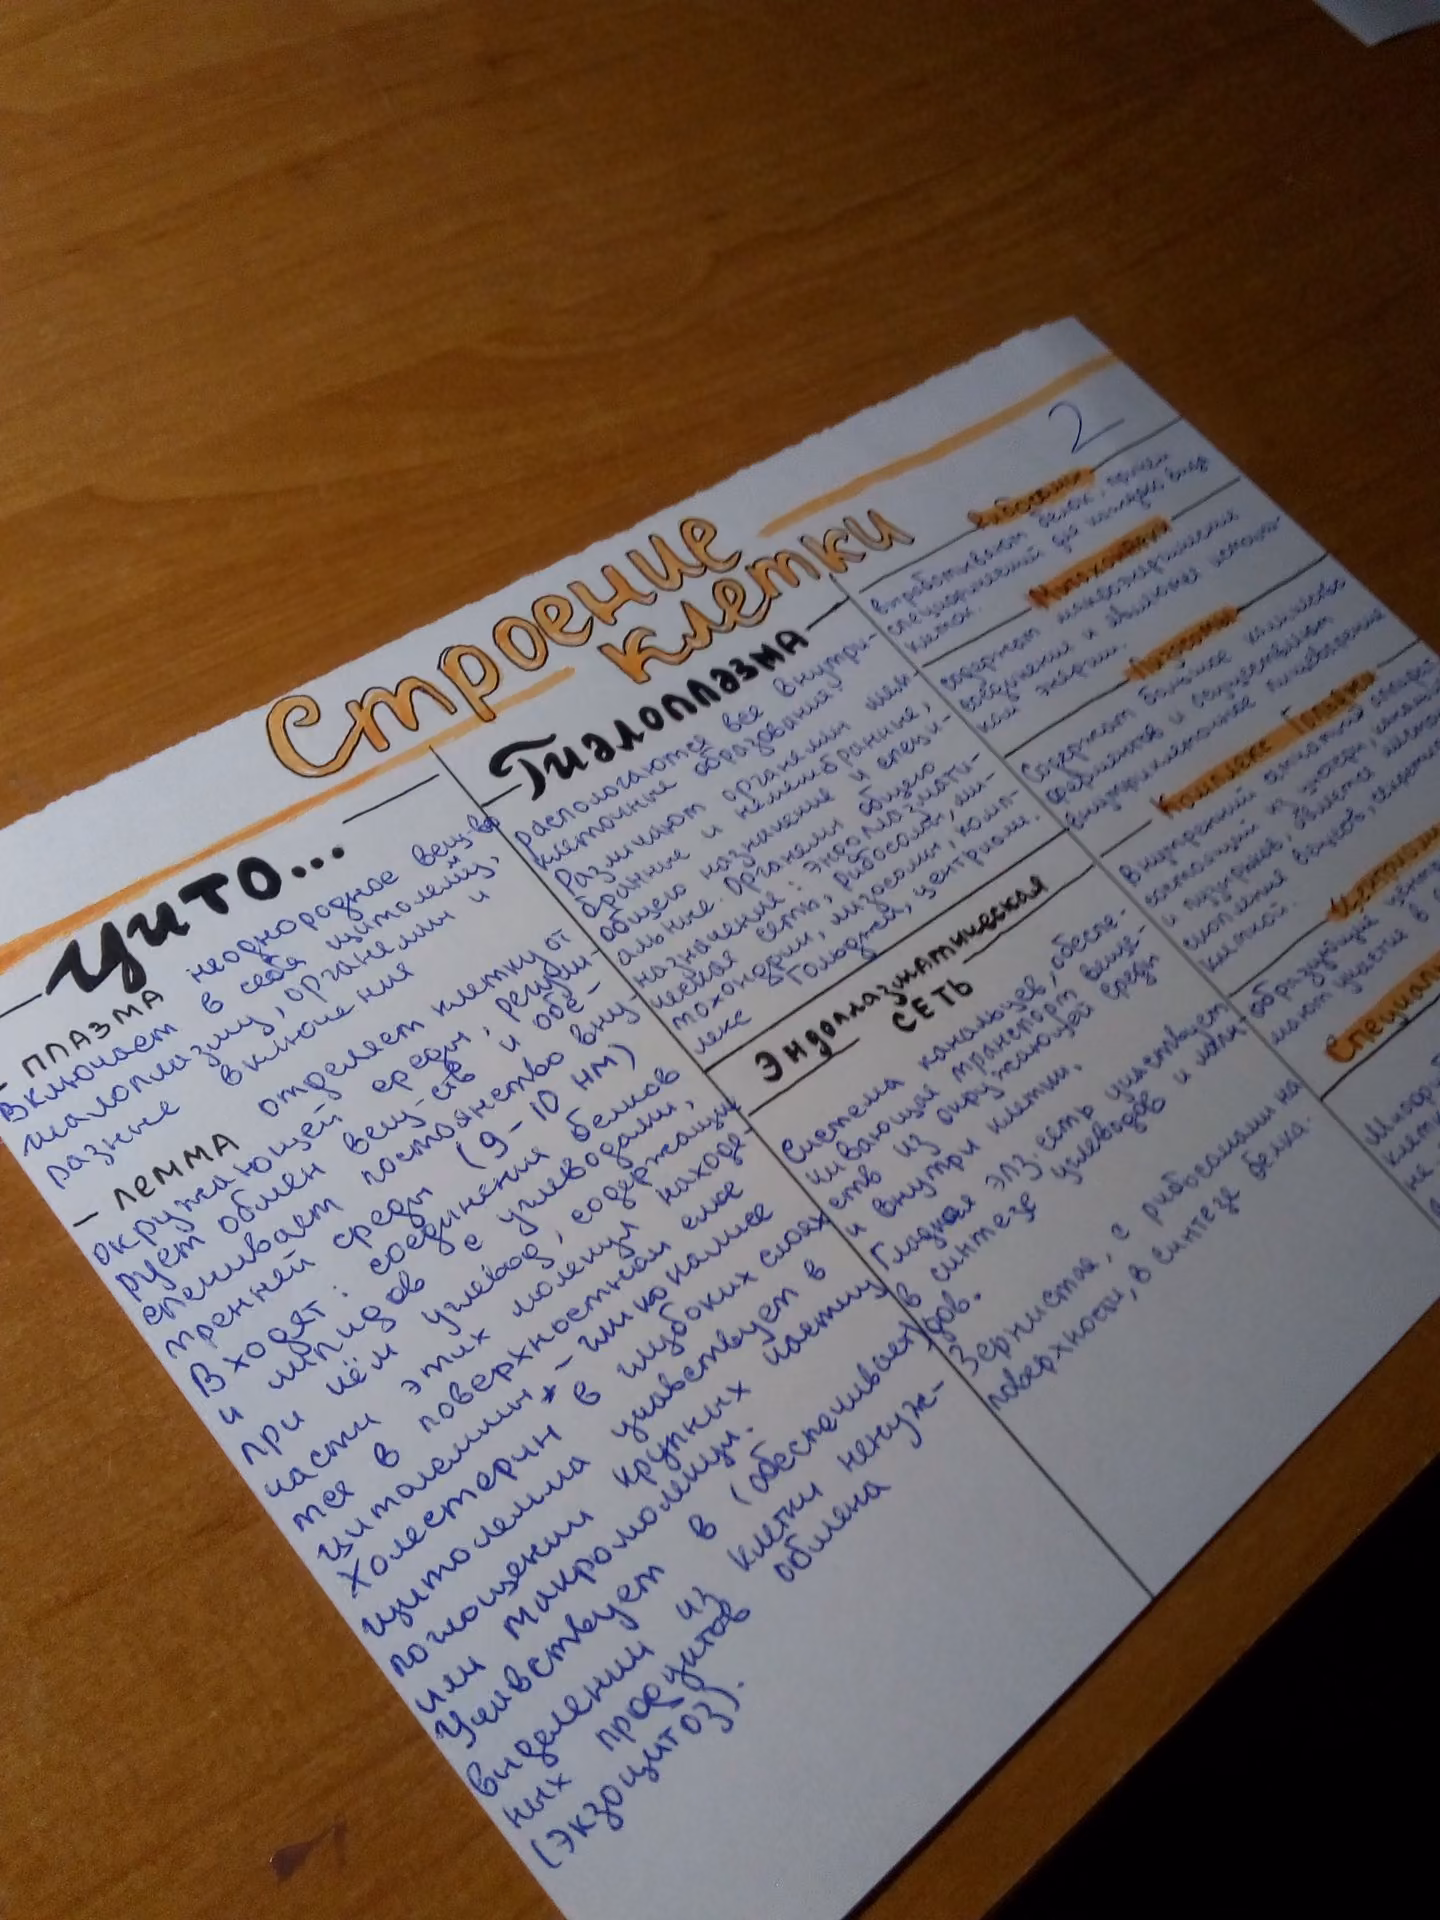 Строение
клетки
2
Цито...
- ПЛАЗМА неоднородное вещ-во
Включает в себя цитолемму,
гиалоплазму, органеллы и
разные включения
- ЛЕММА отделяет клетку от
окружающей среды, регули-
рует обмен вещ-ств и обе-
спечивает постоянство вну-
тренней среды (9-10 нм)
Входят: соединения белков
и липидов с углеводами,
при чём углевод, содержащие
части этих молекул находя-
тся в поверхностном слое
цитолеммы - гликокаликсе
Холестерин в глубоких слоях
Цитолемма участвует в
поглощении крупных частиц
или макромолекул.
Учавствует в (обеспечивает)
выделении из клетки ненуж-
ных продуктов обмена
(экзоцитоз).
Гиалоплазма
располагаются все внутри-
клеточные образования.
Различают органеллы мем-
бранные и немебранные,
общего назначения и специ-
альные. Органеллы общего
назначения: эндоплазмати-
ческая сеть, рибосомы, ми-
тохондрии, лизосомы, комп-
лекс Гольджи, центриоли.
Эндоплазматическая
СЕТЬ
Система канальцев, обеспе-
чивающая транспорт веще-
ств из окружающей среды
и внутри клетки.
Гладкая эпз. сеть участвует
в синтезе углеводов и липи-
дов.
Зернистая, с рибосомами на
поверхности, в синтезе белка.
Рибосомы
вырабатывают белок, причём
специфический для каждого вида
клеток.
Митохондрии
содержат макроэргические
соединения и являются источни-
ком энергии.
Лизосомы
Содержат большое количество
ферментов и осуществляют
внутриклеточное пищеварение
Комплекс Гольджи
Внутренний сетчатый аппарат
состоящий из цистерн, каналь
и пузырьков, является местом
скопления веществ,
клеткой.
Центриоли
образующие центр
мают участие в
Специал
Миоф
клетк
не